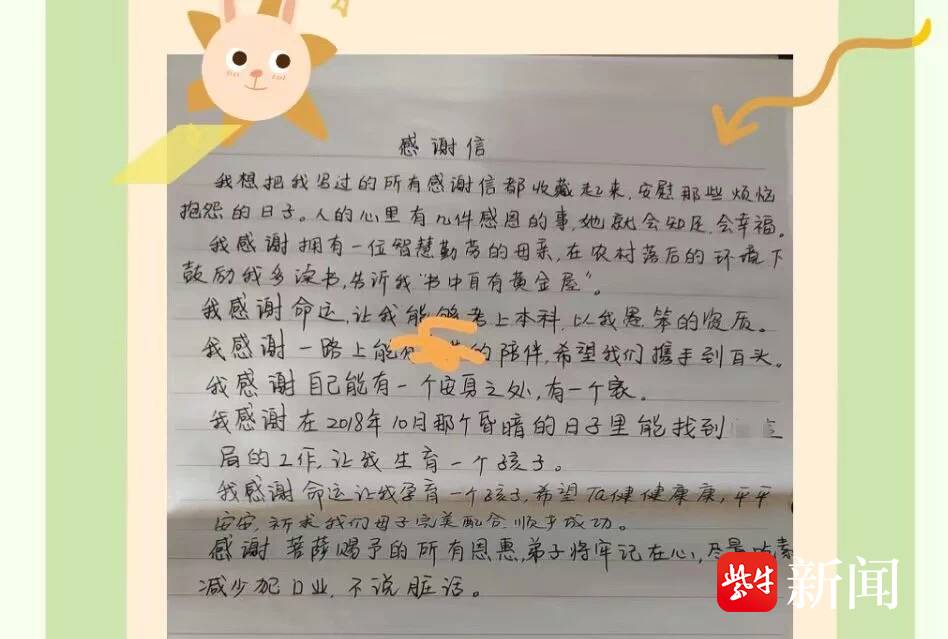 感谢信
我想把我写过的所有感谢信都收藏起来,安慰那些烦恼
抱怨的日子。人的心里有几件感恩的事,她就会知足,会幸福。
我感谢拥有一位智慧勤劳的母亲,在农村落后的环境下
鼓励我多读书,告诉我“书中自有黄金屋”。
我感谢命运,让我能够考上本科,以我愚笨的资质。
我感谢一路上能的陪伴,希望我们携手到百头。
我感谢自己能有一个安身之处,有一个家。
我感谢在2018年10月那个昏暗的日子里能找到
局的工作,让我生育一个孩子。
我感谢命运让我孕育一个孩子,希望Ta健健康康,平平
安安,祈求我们母子完美配合,顺利成功。
感谢菩萨赐予的所有恩惠,弟子将牢记在心,尽量吃素
减少犯口业,不说脏话。
紫牛 新闻